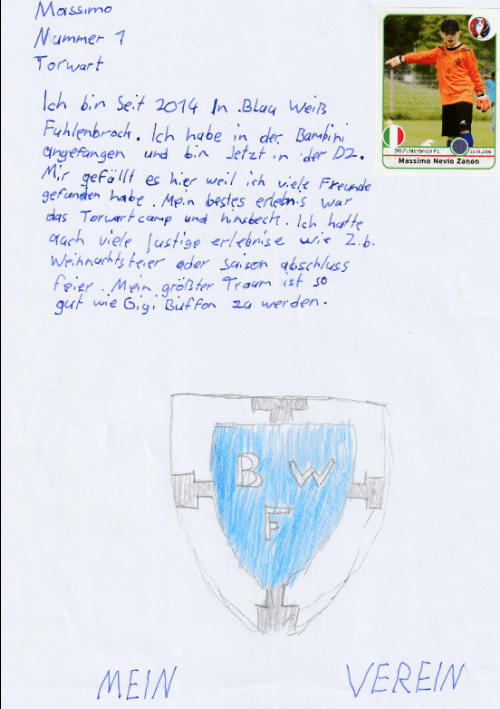 Massimo
Nummer 1
Torwart
Ich bin Seit 2014 In Blau Weiß
Fuhlenbrock. Ich habe in der Bambini
angefangen und bin Jetzt in der D2.
Mir gefällt es hier weil ich viele Freunde
gefunden habe. Mein bestes erlebnis war
das Torwartcamp und hinsbeck. Ich hatte
auch viele lustige erlebnise wie Z.b.
Weihnachtsfeier oder saison abschluss
feier. Mein größter Traum ist so
gut wie Gigi Buffon zu werden.
Massimo Nevio Zanon
B W
F
MEIN VEREIN